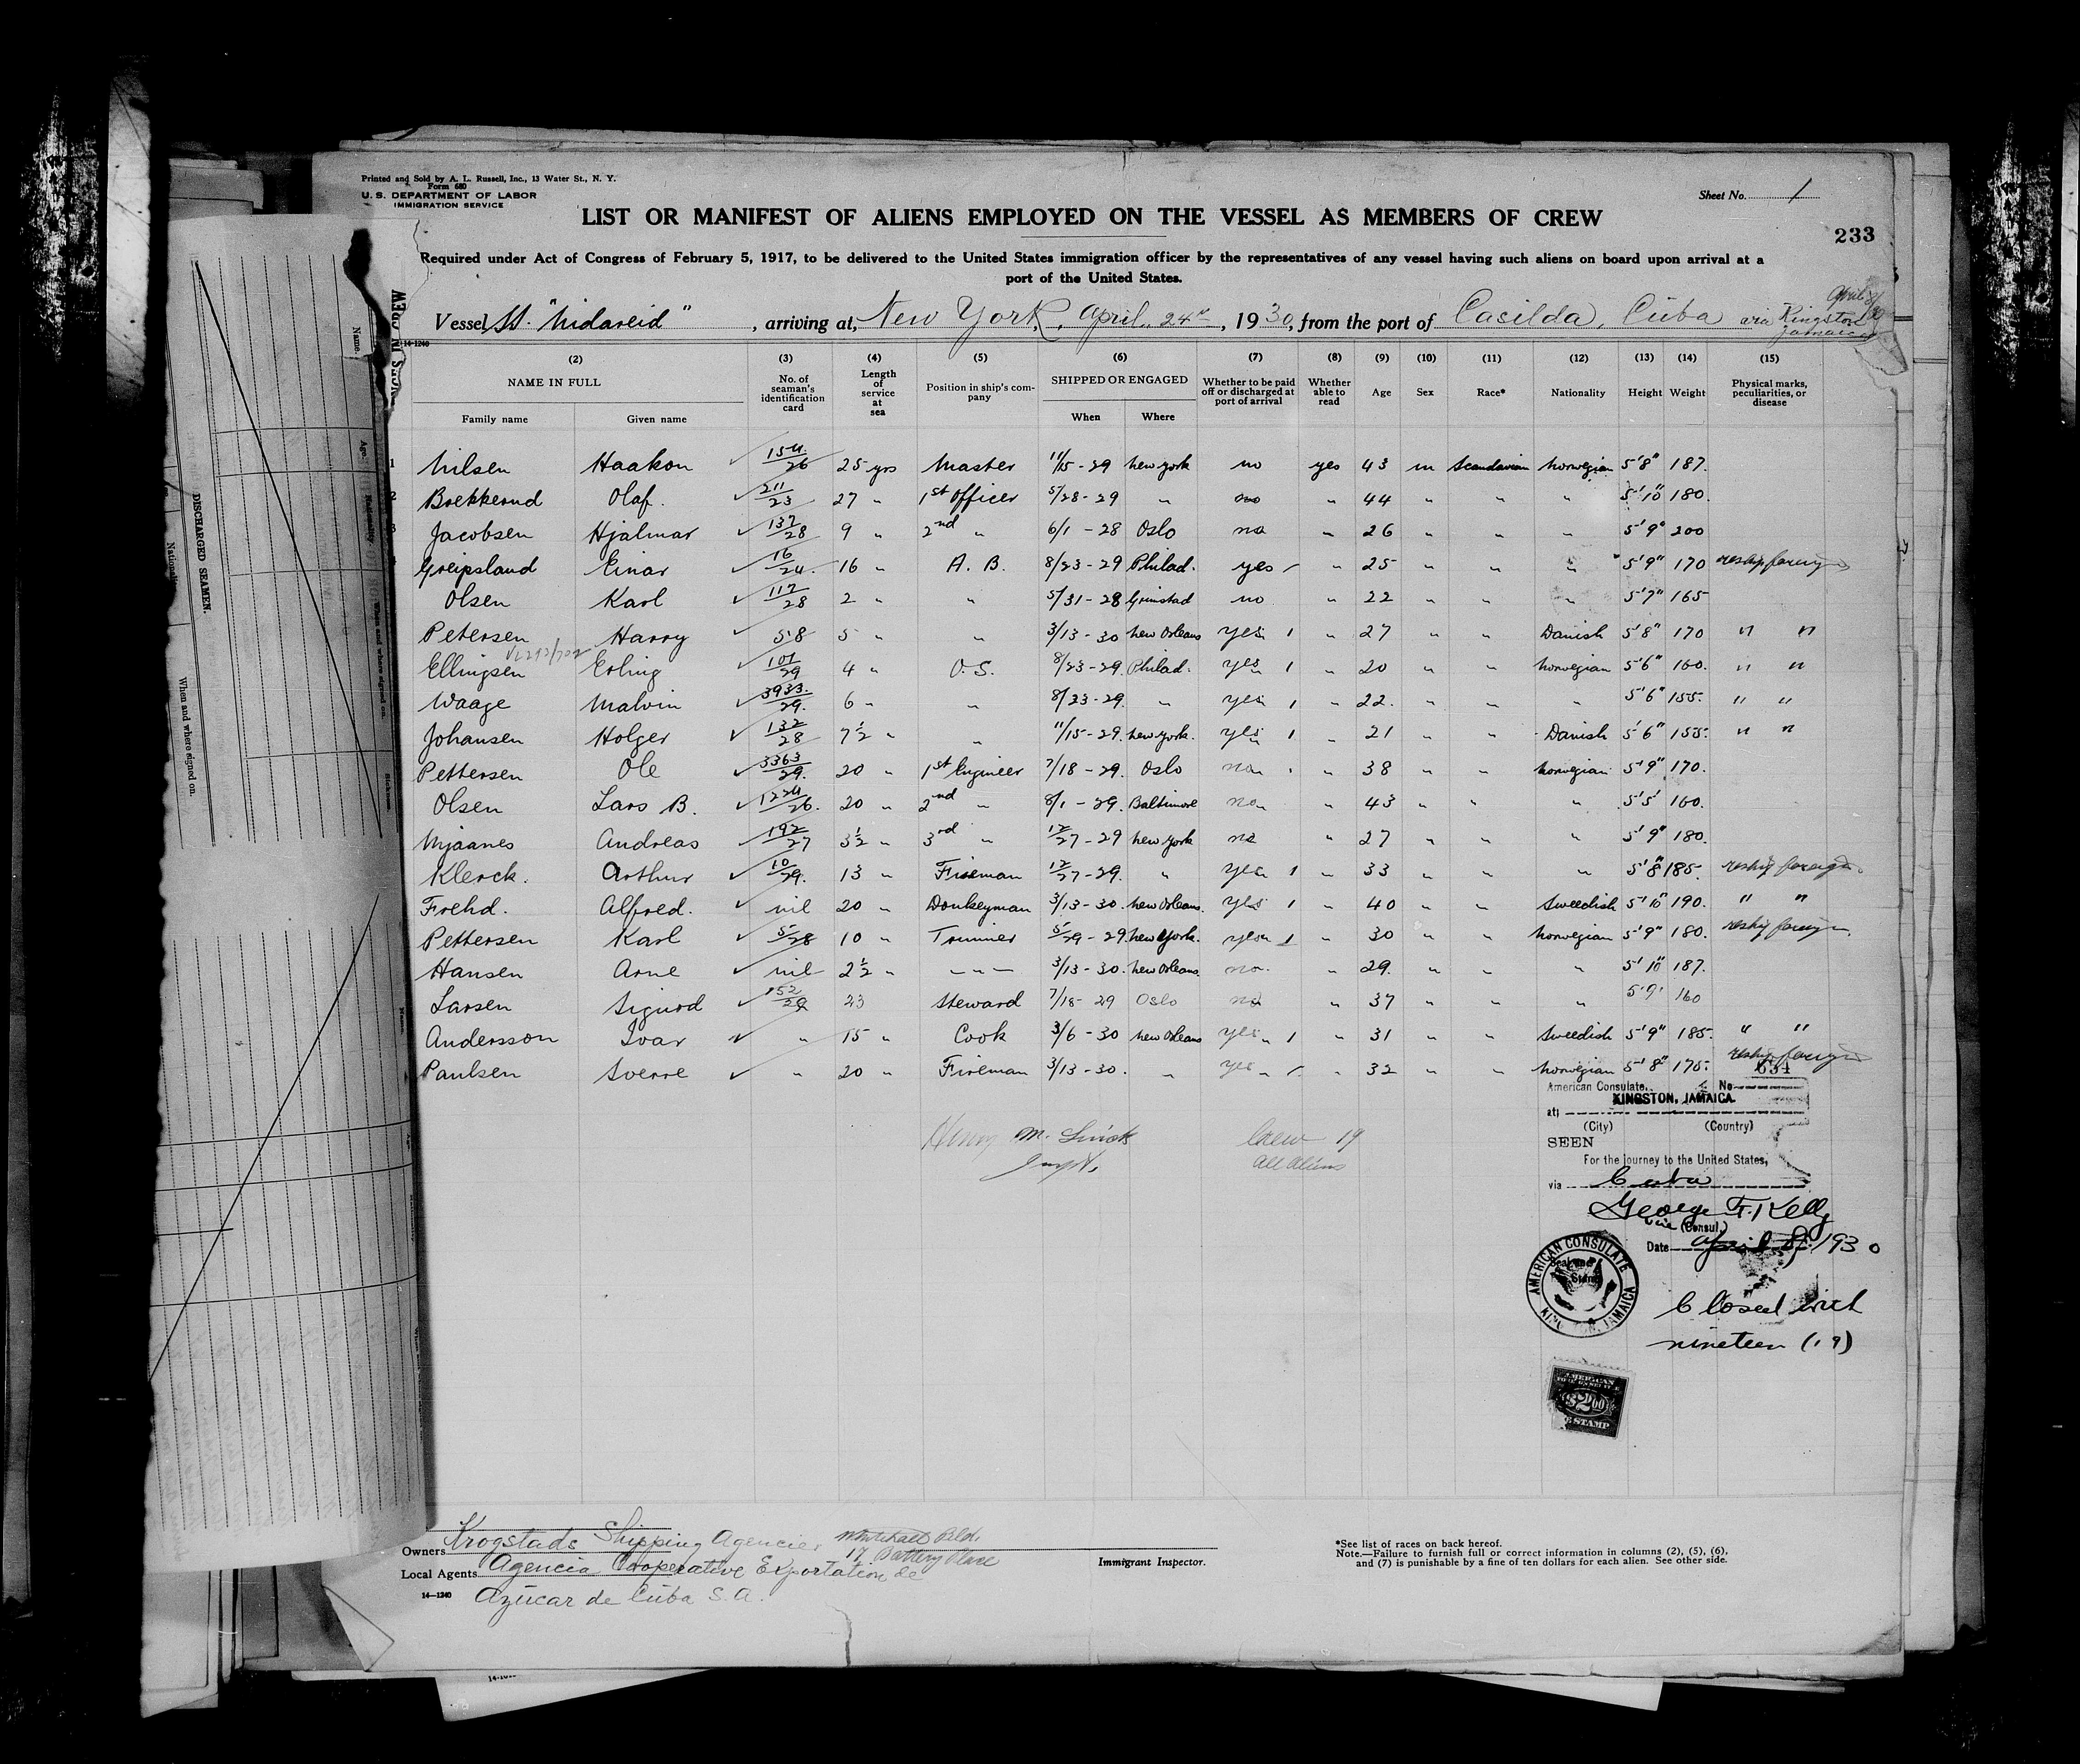 Printed and Sold by A. L. Russell, Inc., 13 Water St., N. Y.
Form 680
U. S. DEPARTMENT OF LABOR
IMMIGRATION SERVICE
Sheet No. 1
LIST OR MANIFEST OF ALIENS EMPLOYED ON THE VESSEL AS MEMBERS OF CREW
233
Required under Act of Congress of February 5, 1917, to be delivered to the United States immigration officer by the representatives of any vessel having such aliens on board upon arrival at a
port of the United States.
Vessel "Nidareid", arriving at, New York, April 24, 1930, from the port of Casilda, Cuba via Kingston Jamaica
14-1240
(2) (3) (4) (5) (6) (7) (8) (9) (10) (11) (12) (13) (14) (15)
NAME IN FULL No. of seaman's identification card Length of service at sea Position in ship's company SHIPPED OR ENGAGED Whether to be paid off or discharged at port of arrival Whether able to read Age Sex Race* Nationality Height Weight Physical marks, peculiarities, or disease
Family name Given name When Where
1 Nilsen Haakon 154/26 25 yrs Master 11/15-29 New York no yes 43 m Scandavian Norwegian 5'8" 187.
2 Brekkerud Olaf. 211/23 27 " 1st Officer 5/28-29 " no " 44 " " " 5'10" 180.
3 Jacobsen Hjalmar 137/28 9 " 2nd " 6/1-28 Oslo no " 26 " " " 5'9" 200
Greipsland Einar 16/24. 16 " A. B. 8/23-29 Philad. yes " 25 " " " 5'9" 170 reship foreign
Olsen Karl 117/28 2 " " 5/31-28 Grimstad no " 22 " " " 5'7" 165
Petersen Harry 58 5 " " 3/13-30 New Orleans yes 1 " 27 " " Danish 5'8" 170 " "
Ellingsen Erling 101/29 4 " O. S. 8/23-29. Philad. yes 1 " 20 " " Norwegian 5'6" 160. " "
Waage Malvin 3933/29. 6 " " 8/23-29. " yes 1 " 22. " " " 5'6" 155. " "
Johansen Holger 132/28 7½ " " 11/15-29. New York. yes 1 " 21 " " Danish 5'6" 155. " "
Pettersen Ole 3363/29. 20 " 1st Engineer 7/18-29. Oslo no " 38 " " Norwegian 5'9" 170.
Olsen Lars B. 1224/26. 20 " 2nd " 8/1-29. Baltimore no " 43 " " " 5'5" 160.
Mjaanes Andreas 192/27 3½ " 3rd " 12/27-29 New York no " 27 " " " 5'9" 180.
Klerck. Arthur 10/29. 13 " Fireman 12/27-29. " yes 1 " 33 " " " 5'8" 185. reship foreign
Frehd. Alfred. nil 20 " Donkeyman 3/13-30. New Orleans. yes 1 " 40 " " Swedish 5'10" 190. " "
Pettersen Karl 5/28 10 " Trimmer 5/29-29. New York. yes 1 " 30 " " Norwegian 5'9" 180. reship foreign
Hansen Arne nil 2½ " " 3/13-30. New Orleans no. " 29. " " " 5'10" 187.
Larsen Sigurd 152/29 23 Steward 7/18-29 Oslo no " 37 " " " 5'9" 160
Andersson Ivar " 15 " Cook 3/6-30 New Orleans yes 1 " 31 " " Swedish 5'9" 185. " "
Paulsen Sverre " 20 " Fireman 3/13-30. " yes " 32 " " Norwegian 5'8" 175. reship foreign
American Consulate, No. 654
at KINGSTON, JAMAICA.
(City) (Country)
SEEN
For the journey to the United States,
via Cuba
George F. Kelly
Vice (Consul.)
Date April 8, 1930
AMERICAN CONSULATE KINGSTON, JAMAICA
Closed with
nineteen (19)
AMERICAN
$2.00
STAMP
Henry M.
Crew 19
all aliens
Owners Krogstads Shipping Agencies Whitehall Bld.
17 Battery Place
Local Agents Agencia Cooperative Exportation de
Azucar de Cuba S. A.
14-1240
Immigrant Inspector.
*See list of races on back hereof.
Note.—Failure to furnish full or correct information in columns (2), (5), (6),
and (7) is punishable by a fine of ten dollars for each alien. See other side.
DISCHARGED SEAMEN.
Name.
Age.
When and where signed on.